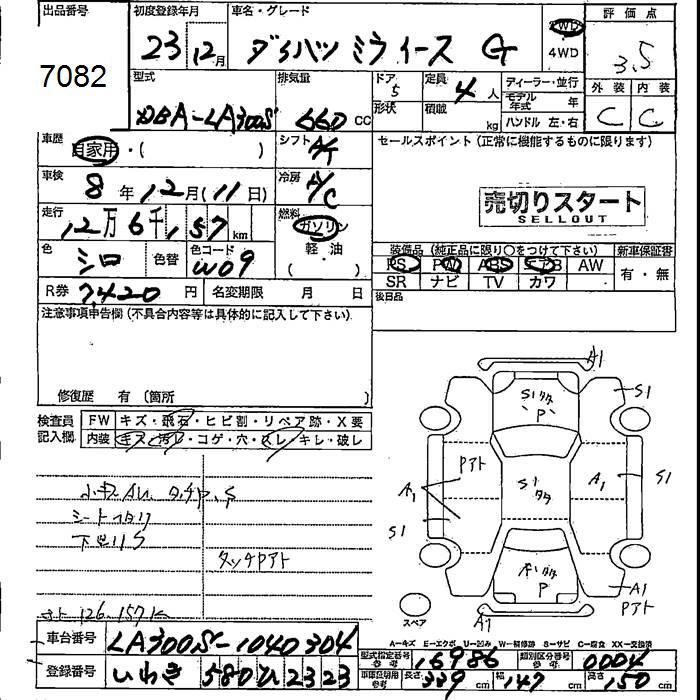 出品番号
7082
初度登録年月
23 12月
車名・グレード
ダイハツ ミライース G
2WD
4WD
評価点
3.5
外装 内装
C C
型式
DBA-LA300S
排気量
660 CC
ドア
5
形状
定員
4人
積載
kg
ディーラー・並行
モデル年式 年
ハンドル 左・右
車歴
自家用・( )
シフト
A/T
セールスポイント (正常に機能するものに限ります)
車検
8年12月(11日)
冷房
A/C
売切りスタート
SELLOUT
走行
12万6千,157km
燃料
ガソリン
軽・油
( )
色
シロ
色替
色コード
W09
装備品 (純正品に限り○をつけて下さい)
新車保証書
PS PW ABS エアB AW
SR ナビ TV カワ
有・無
R券 7,420円
名変期限 月 日
後日品
注意事項申告欄 (不具合内容等は具体的に記入して下さい)
修復歴 有 (箇所 )
検査員記入欄
FW キズ・飛石・ヒビ割・リペア跡・X要
内装 キズ・汚レ・コゲ・穴・スレ・キレ・破レ
シートヨゴリ
下廻りS
タッチアト
126.157K
A1
S1
S1タタ
P
S1
Pアト
A1
S1タタ
A1
S1
S1
P
A1
Pアト
スペア
A1
A-キズ E-エクボ U-凹み W-補修跡 S-サビ C-腐食 XX-交換済
車台番号
LA300S-1040304
型式指定番号 参考
16986
類別区分番号 参考
0004
登録番号
いわき 580 ひ 23 23
車庫証明用 参考
長さ 339cm 幅 147cm 高さ 150cm